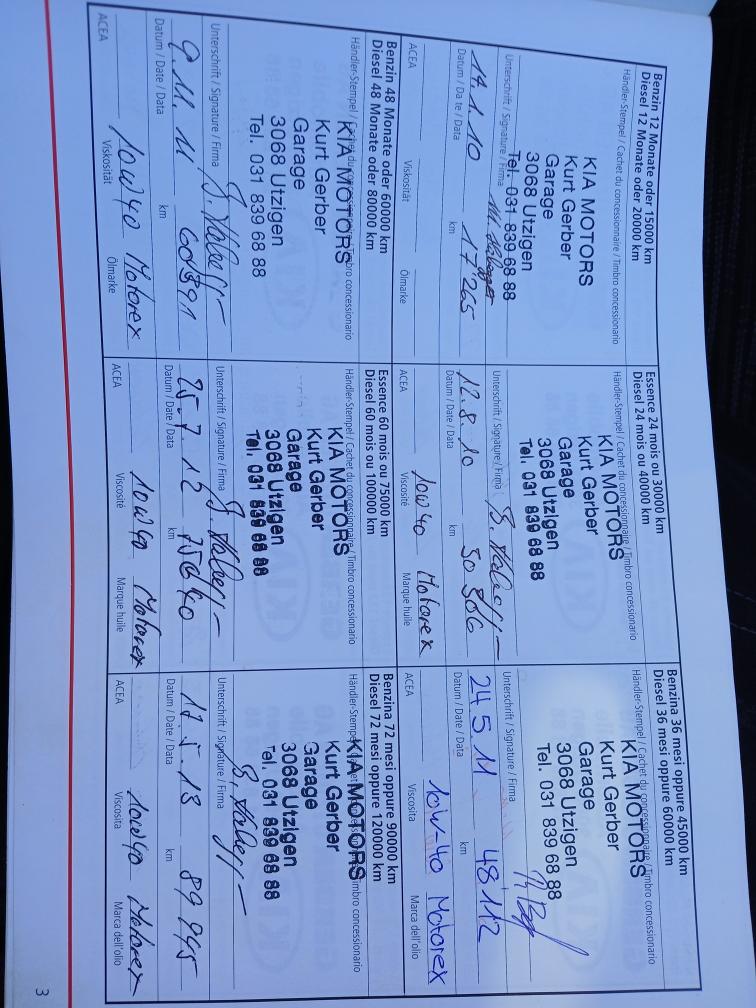 Benzin 12 Monate oder 15000 km
Diesel 12 Monate oder 20000 km
Händler-Stempel / Cachet du concessionnaire / Timbro concessionario
KIA MOTORS
Kurt Gerber
Garage
3068 Utzigen
Tel. 031 839 68 88
Unterschrift / Signature / Firma
14.1.10 17'265
Datum / Date / Data km
ACEA Viskosität Ölmarke
Essence 24 mois ou 30000 km
Diesel 24 mois ou 40000 km
Händler-Stempel / Cachet du concessionnaire / Timbro concessionario
KIA MOTORS
Kurt Gerber
Garage
3068 Utzigen
Tel. 031 839 68 88
Unterschrift / Signature / Firma
12.8.10 30 386
Datum / Date / Data km
10W40 Motorex
ACEA Viscosité Marque huile
Benzina 36 mesi oppure 45000 km
Diesel 36 mesi oppure 60000 km
Händler-Stempel / Cachet du concessionnaire / Timbro concessionario
KIA MOTORS
Kurt Gerber
Garage
3068 Utzigen
Tel. 031 839 68 88
Unterschrift / Signature / Firma
24.5.11 48112
Datum / Date / Data km
10W-40 Motorex
ACEA Viscosita Marca dell'olio
Benzin 48 Monate oder 60000 km
Diesel 48 Monate oder 80000 km
Händler-Stempel / Cachet du concessionnaire / Timbro concessionario
KIA MOTORS
Kurt Gerber
Garage
3068 Utzigen
Tel. 031 839 68 88
Unterschrift / Signature / Firma
9.11.11 60891
Datum / Date / Data km
10W40 Motorex
ACEA Viskosität Ölmarke
Essence 60 mois ou 75000 km
Diesel 60 mois ou 100000 km
Händler-Stempel / Cachet du concessionnaire / Timbro concessionario
KIA MOTORS
Kurt Gerber
Garage
3068 Utzigen
Tel. 031 839 68 88
Unterschrift / Signature / Firma
25.7.12
Datum / Date / Data km
10W40 Motorex
ACEA Viscosité Marque huile
Benzina 72 mesi oppure 90000 km
Diesel 72 mesi oppure 120000 km
Händler-Stempel / Cachet du concessionnaire / Timbro concessionario
KIA MOTORS
Kurt Gerber
Garage
3068 Utzigen
Tel. 031 839 68 88
Unterschrift / Signature / Firma
17.5.13 89995
Datum / Date / Data km
10W40 Motorex
ACEA Viscosita Marca dell'olio
3